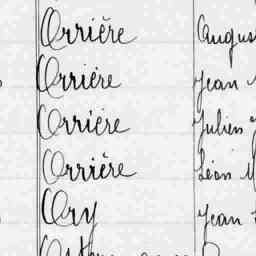 Orrière August
Orrière Jean
Orrière Julien
Orrière Léon M
Ory Jean